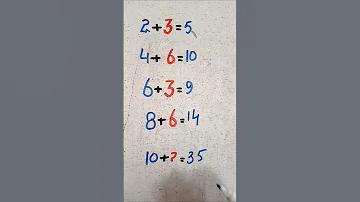 2+3=5
4+6=10
6+3=9
8+6=14
10+?=35